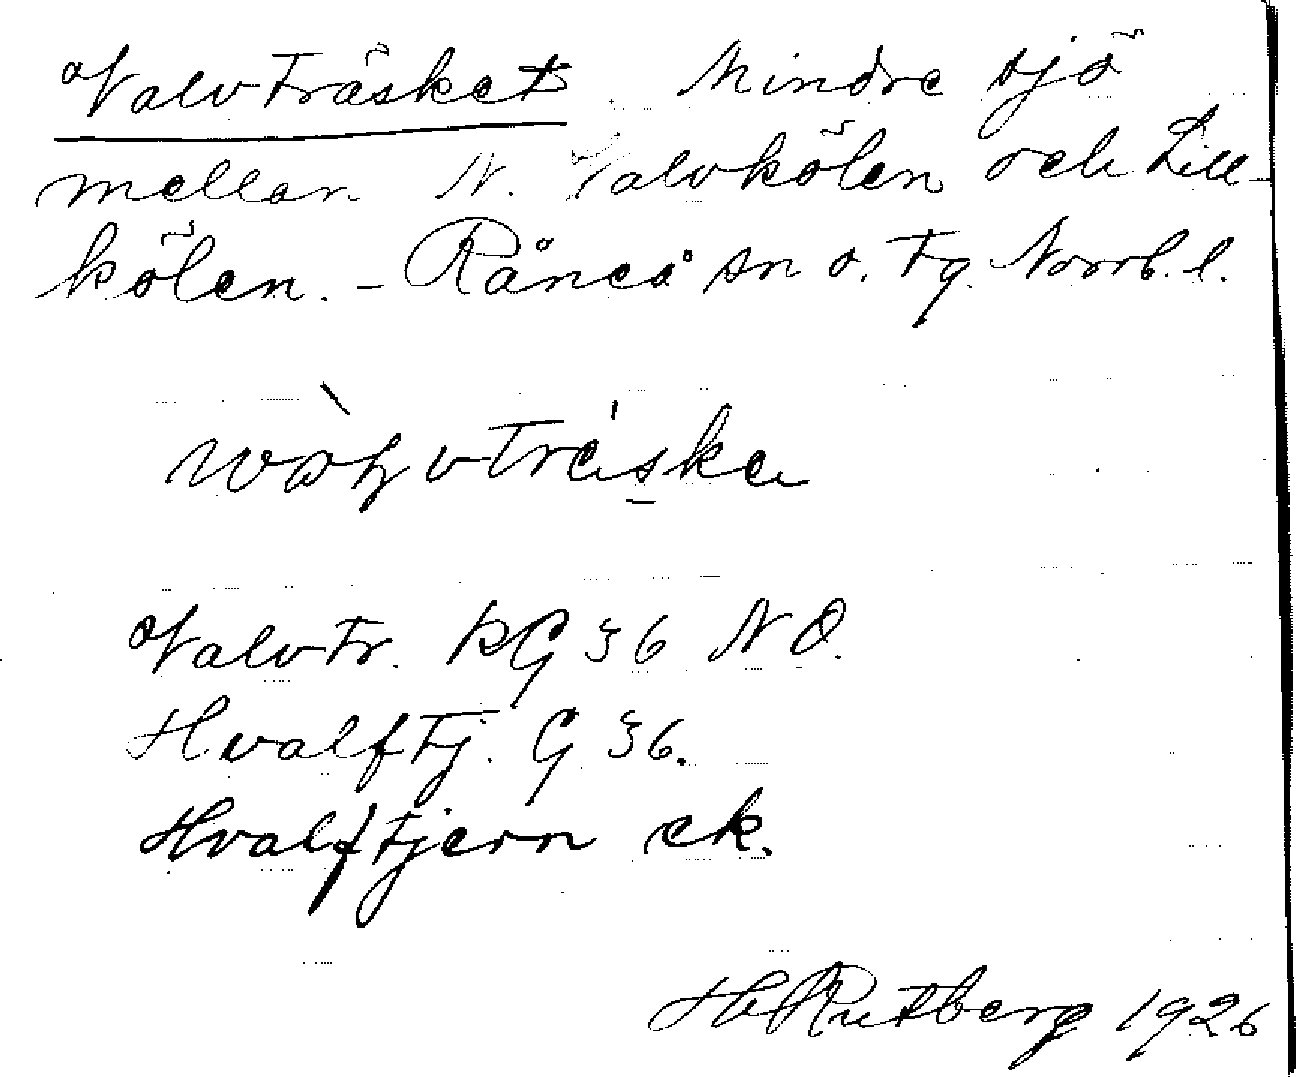 Valvträsket Mindre sjö
mellan N. Valvkölen och Lill-
kölen. - Råneå sn o. tg. Norrb. l.
Valvtr. RG 36 NO.
Hvalftj. G 36.
Hvalftjern ek.
H Rutberg 1926